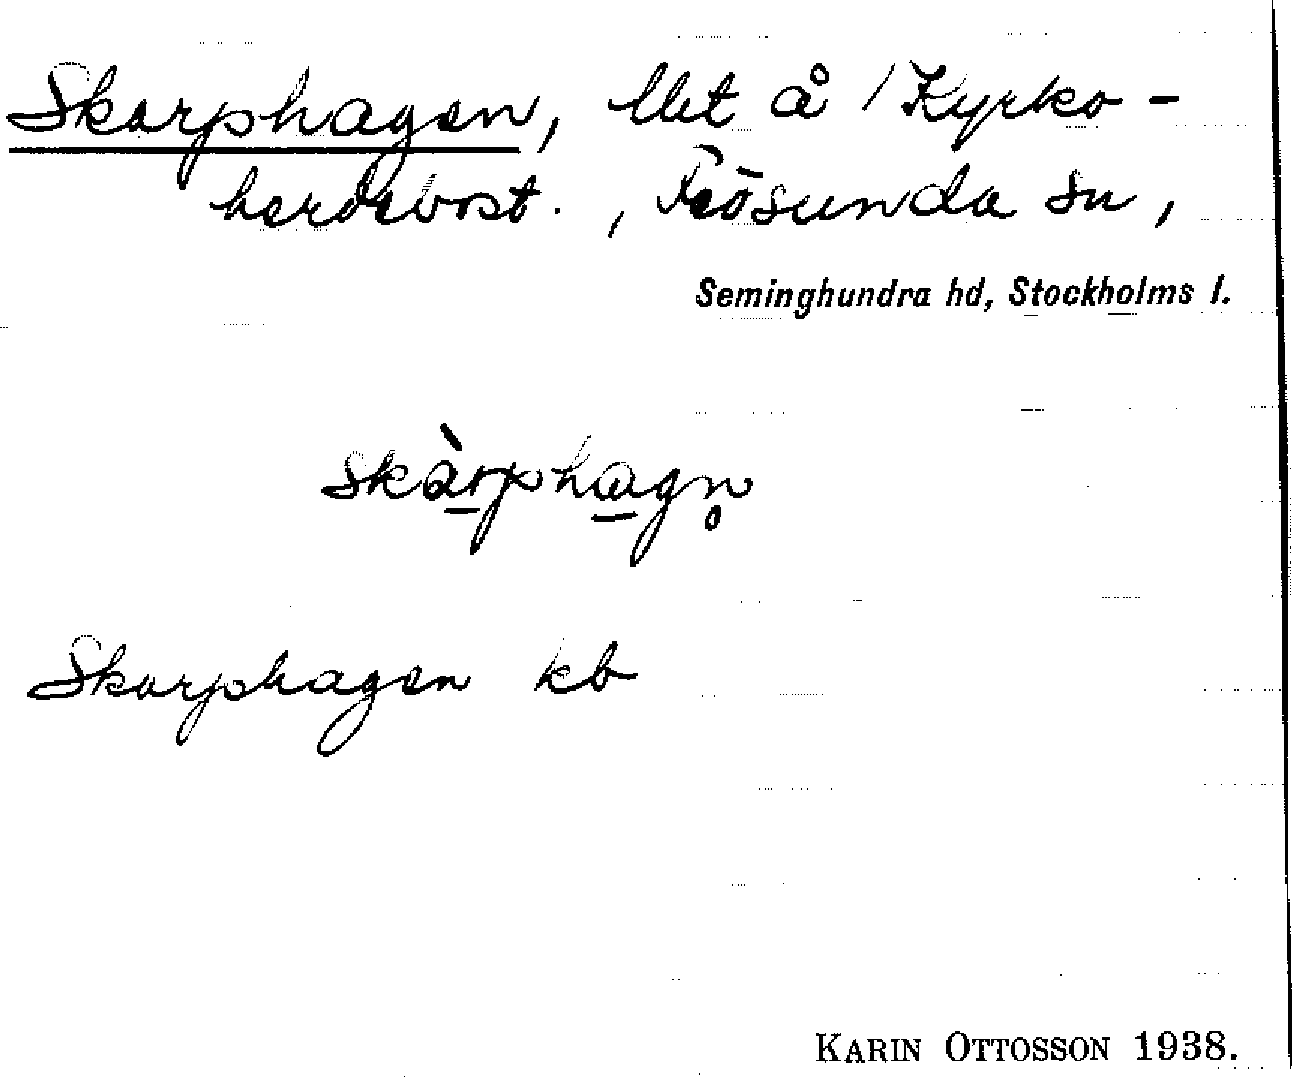 Skarphagen, llet å / Kyrko-
herdebost. , Frösunda sn,
Seminghundra hd, Stockholms l.
skàrphagn̥
Skarphagen kb
KARIN OTTOSSON 1938.